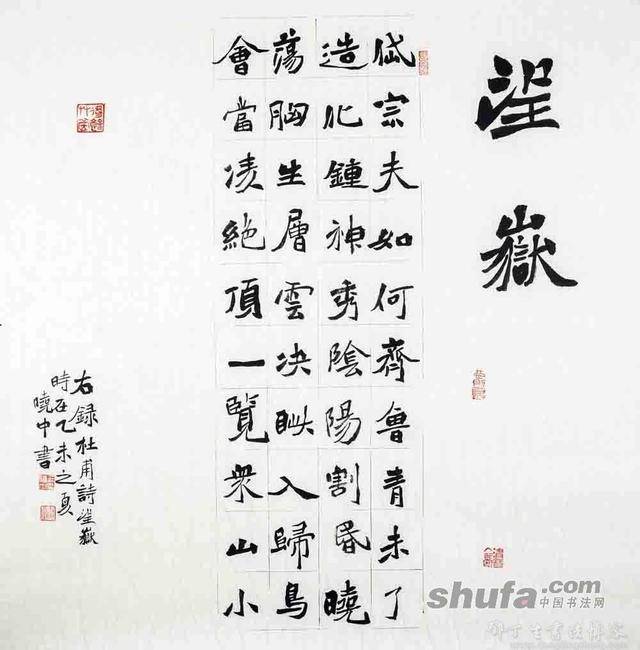 望嶽
岱宗夫如何齊魯青未了
造化鍾神秀陰陽割昏曉
蕩胸生層雲决眦入歸鳥
會當凌絶頂一覽衆山小
右錄杜甫詩望嶽
時在乙未之夏
曉中書
shufa.com
中国书法网